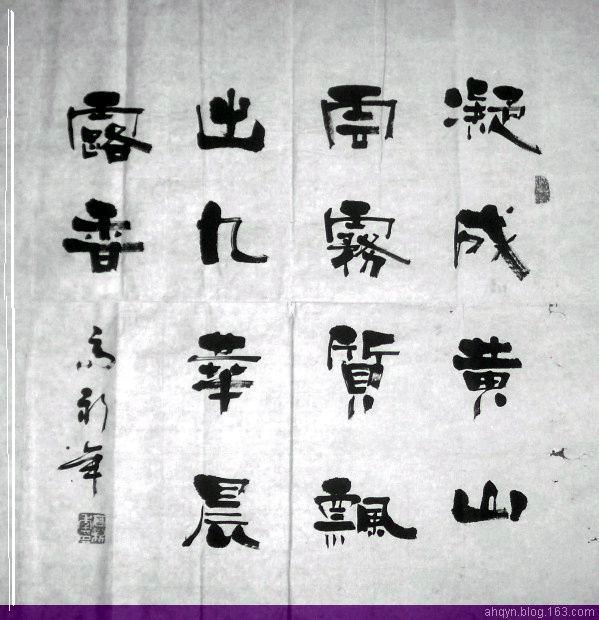 凝成黄山
雲霧質飄
出九華晨
露香
ahqyn.blog.163.com